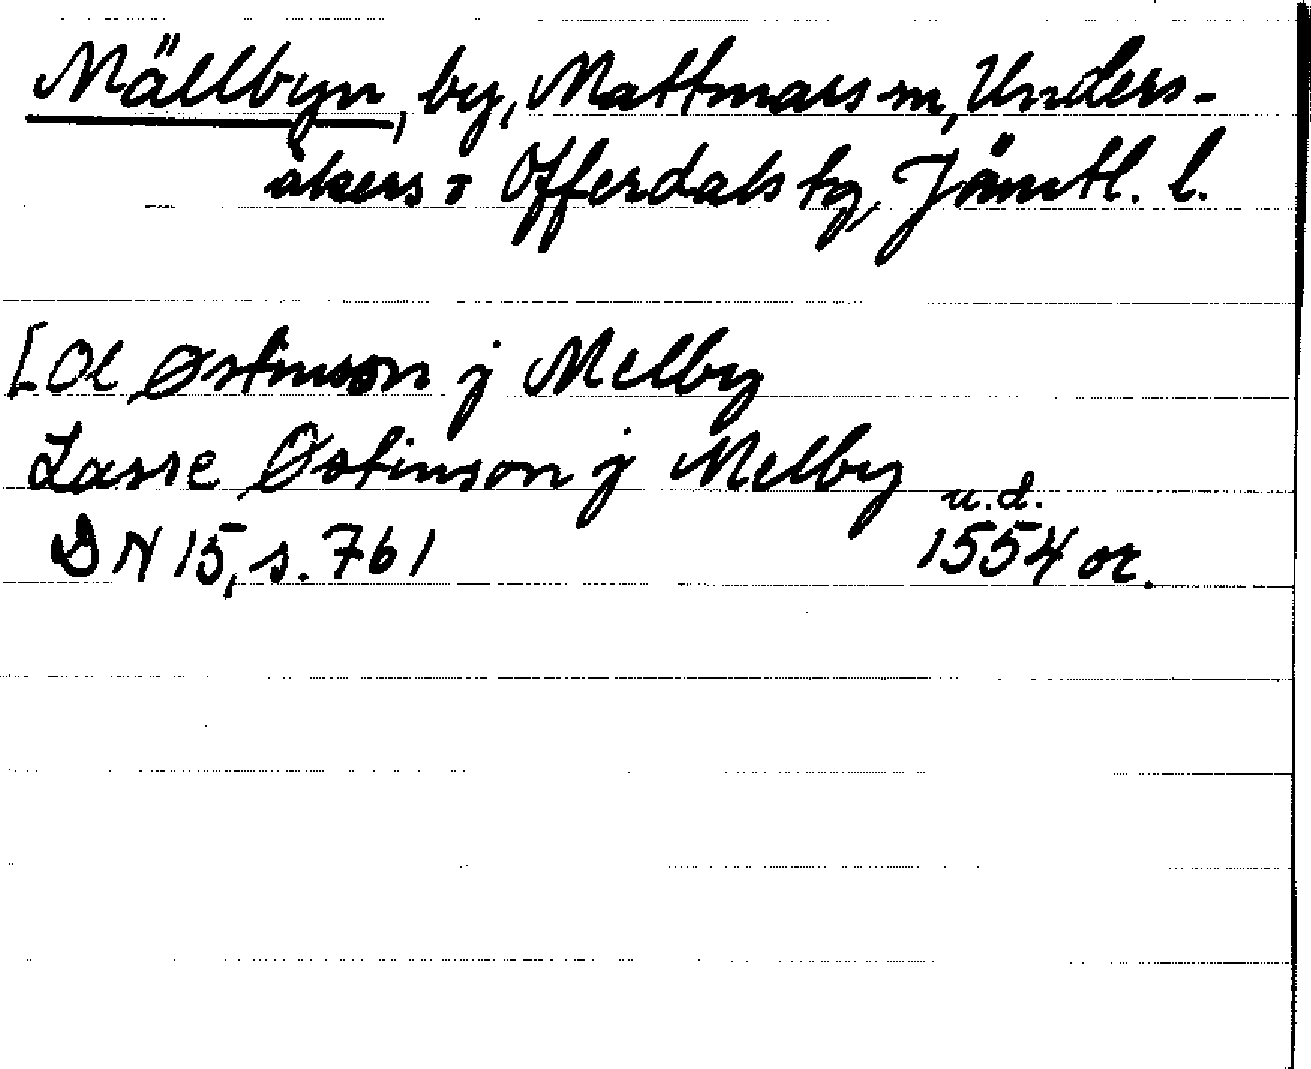 Mällbyn, by, Mattmars sn, Unders-
åkers o Offerdals tg, Jämtl. l.
[Ol Østinson j Melby
Lasse Østinson j Melby
u.d.
DN 15, s. 761 1554 or.